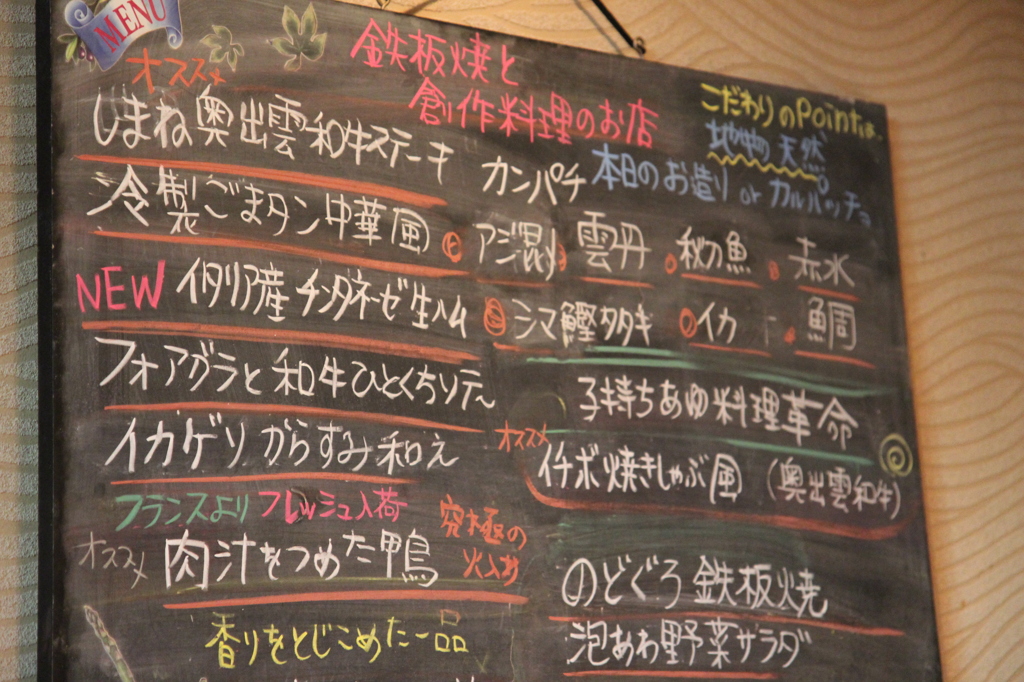 MENU
オススメ
鉄板焼と
創作料理のお店
しまね奥出雲和牛ステーキ
冷製ごまタン中華風
NEW イタリア産 チンタネーゼ生ハム
フォアグラと和牛ひとくちソテー
イカゲソ からすみ和え
フランスより フレッシュ入荷
オススメ 肉汁をつめた鴨
究極の
火入れ
香りをとじこめた一品
こだわりのPointは、
地物 天然
カンパチ 本日のお造り or カルパッチョ
アジ 雲丹 秋刀魚 赤水
シマ鰹タタキ イカ 鯛
子持ちあゆ料理革命
オススメ
イチボ焼きしゃぶ風 (奥出雲和牛)
のどぐろ 鉄板焼
泡あわ野菜サラダ